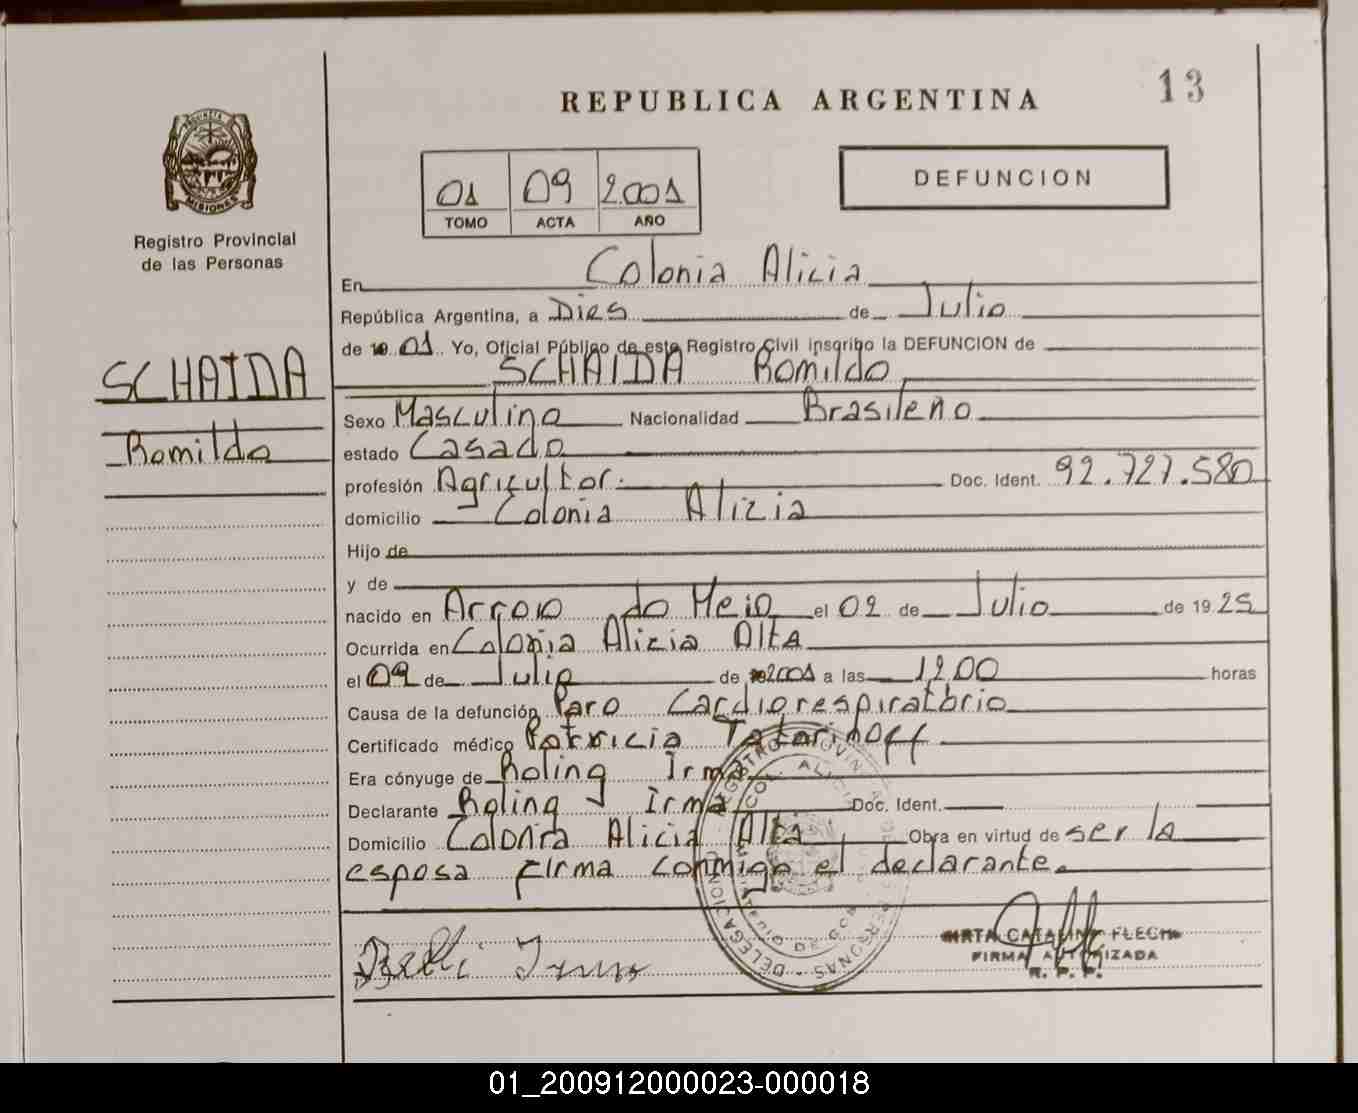 13
REPUBLICA ARGENTINA
PROVINCIA
MISIONES
Registro Provincial
de las Personas
01 09 2.001
TOMO ACTA AÑO
DEFUNCION
En Colonia Alicia
República Argentina, a Dies de Julio
de 19 01 Yo, Oficial Público de este Registro Civil inscribo la DEFUNCION de
SCHAIDA Romildo
SCHAIDA
Romildo
Sexo Masculino Nacionalidad Brasileño
estado Casado
profesión Agricultor. Doc. Ident. 92.727.580
domicilio Colonia Alicia
Hijo de
y de
nacido en Arroio do Meio el 02 de Julio de 19 25
Ocurrida en Colonia Alicia Alta
el 09 de Julio de 2001 a las 12,00 horas
Causa de la defunción Paro Cardiorespiratório
Certificado médico Patricia Tatarinoff
Era cónyuge de Roling Irma
Declarante Roling Irma Doc. Ident.
Domicilio Colonia Alicia Alta Obra en virtud de ser la
esposa firma conmigo el declarante.
Irma
MIRTA CATALINA FLECH
FIRMA AUTORIZADA
R. P. P.
01_200912000023-000018